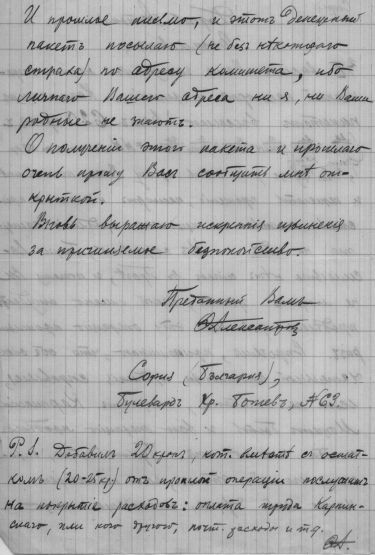 И прошлое письмо, и этотъ денежный
пакетъ посылаю (не безъ нѣкотораго
страха) по адресу комитета, ибо
личнаго Вашего адреса ни я, ни Ваши
родные не знаютъ.
О полученіи этого пакета и прошлаго
очень прошу Васъ сообщить мнѣ от-
крыткой.
Вновь выражаю искреннія извиненія
за причиняемое безпокойство.
Преданный Вамъ
Александровъ
Софія (България),
Булевардъ Хр. Ботевъ, №63.
P.S. Добавилъ 20 кронъ, кот. вмѣстѣ съ остат-
комъ (20-25 кр.) отъ прошлой операціи послужатъ
на покрытіе расходовъ: оплата труда Карпин-
скаго, или кого другого, почт. расходы и т.д.